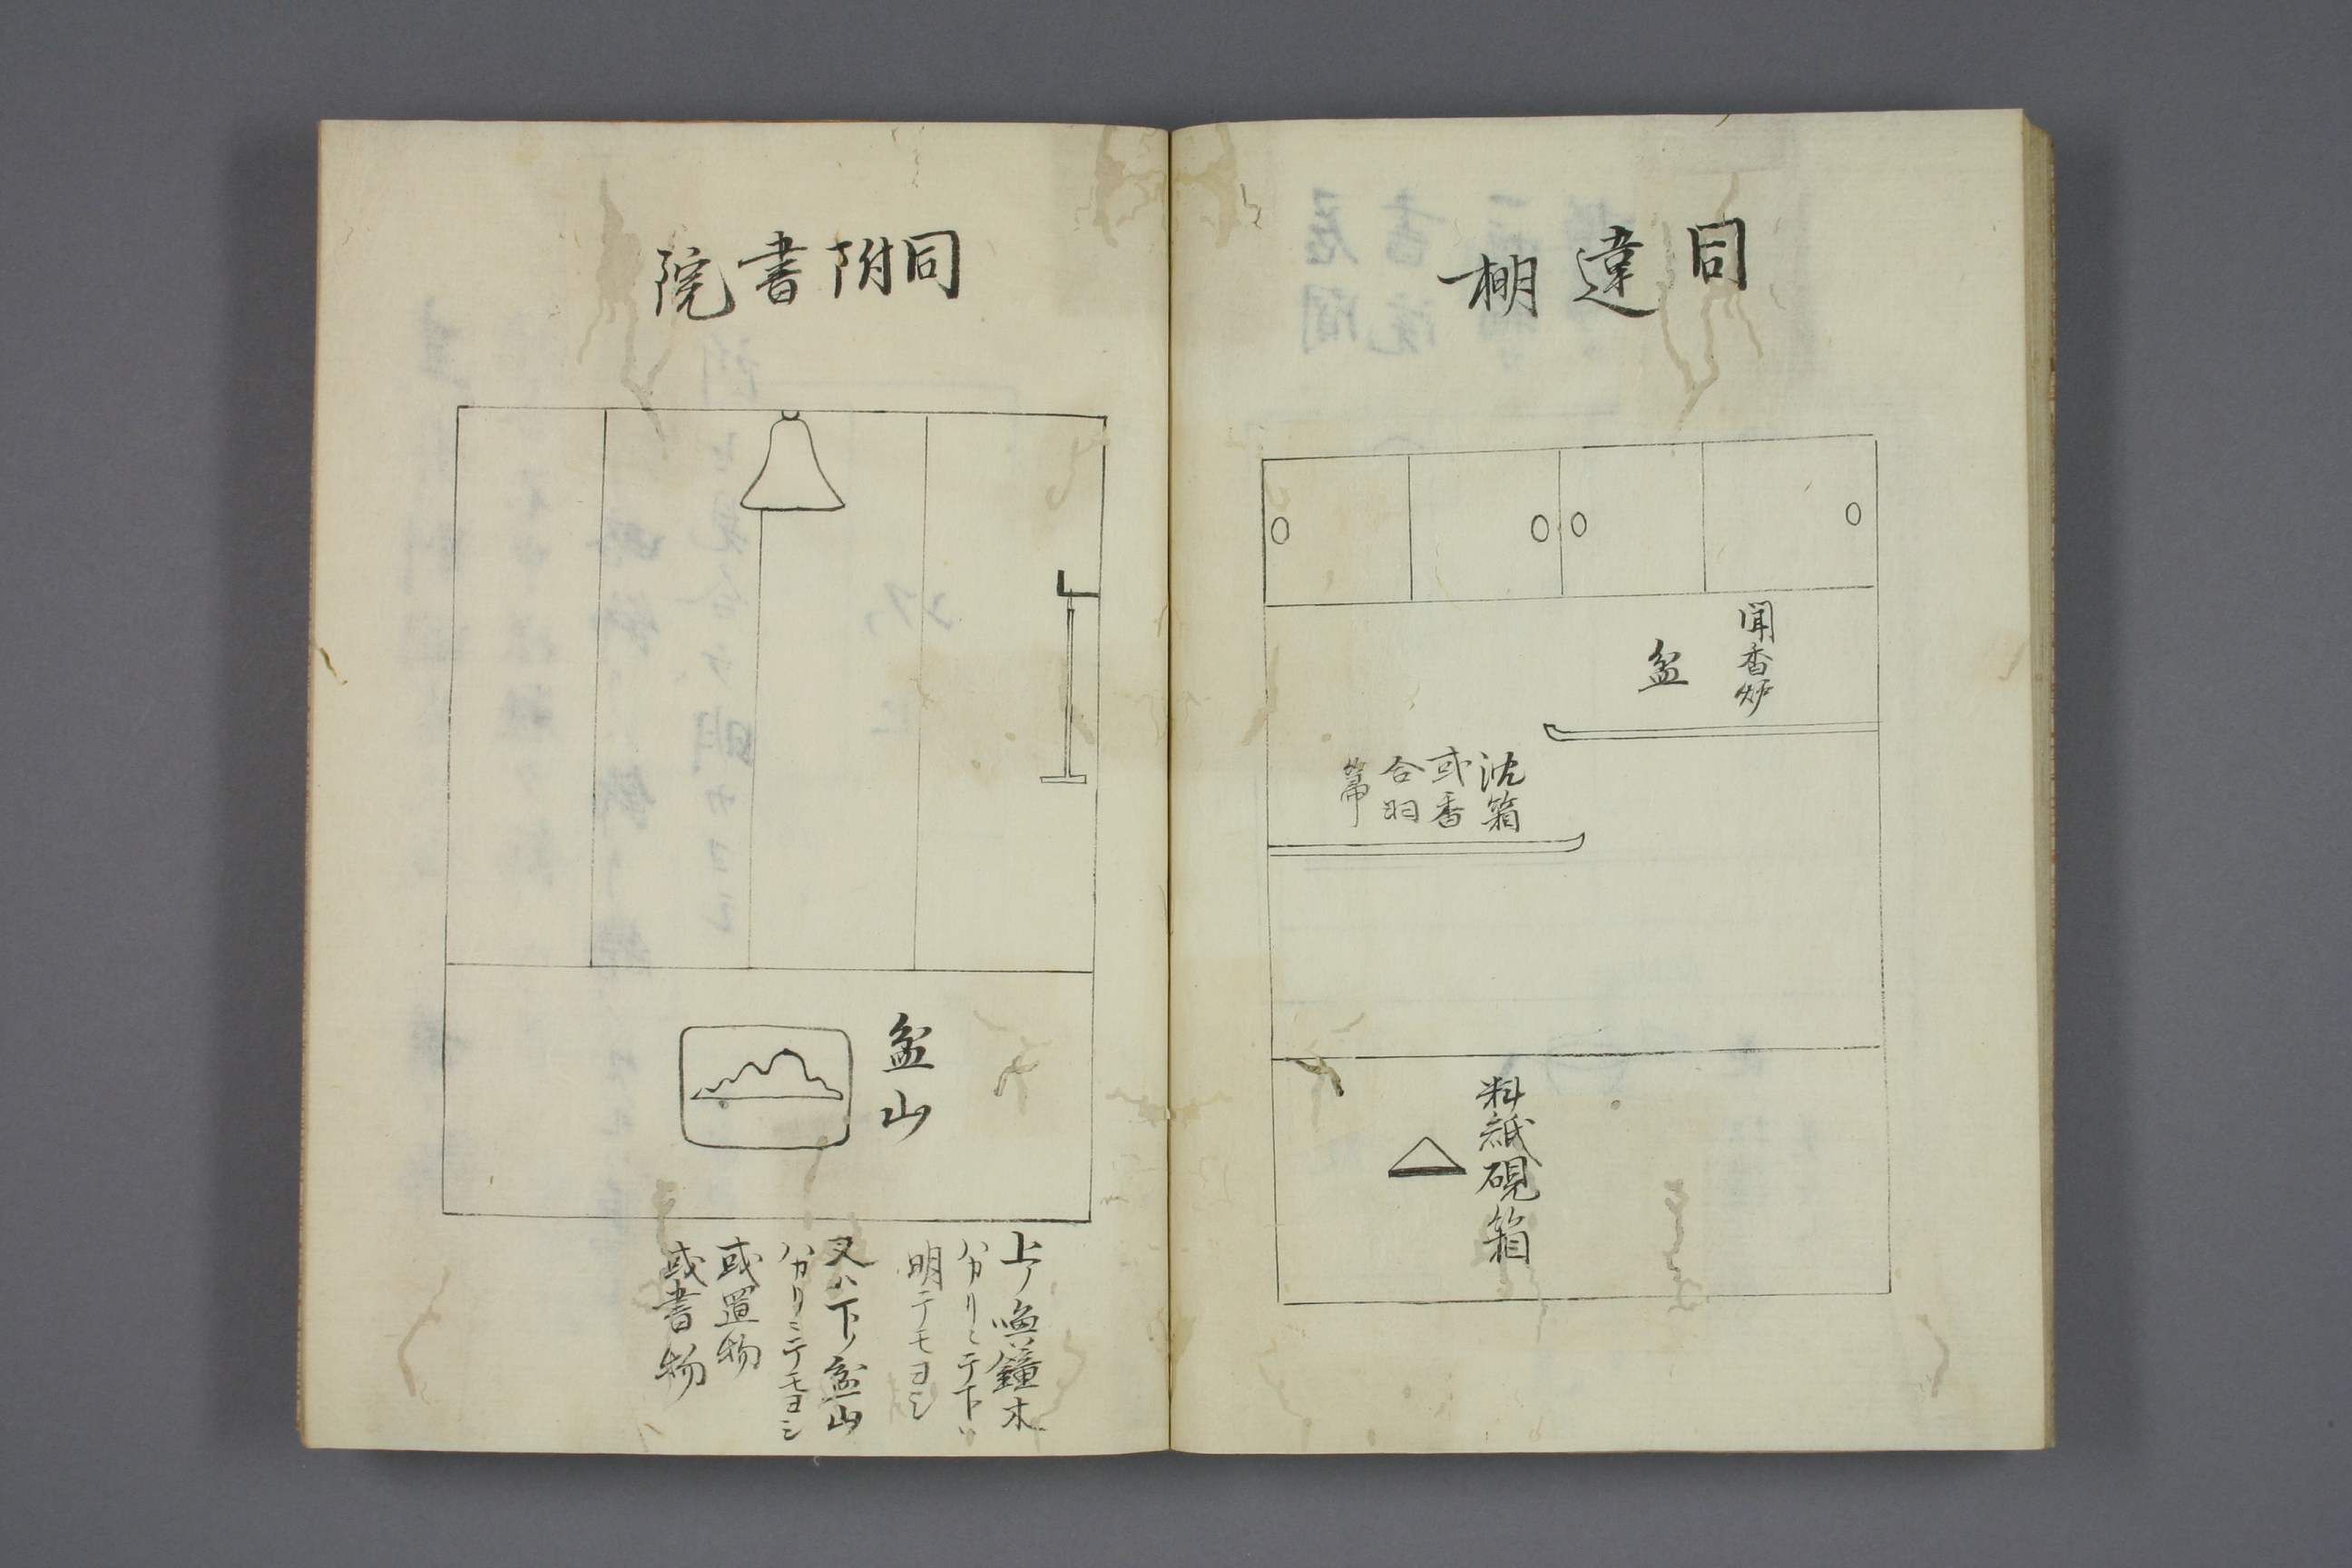 同違棚
聞香炉
盆
沈箱
或香
合羽
箒
料紙硯箱
同附書院
盆山
上ノ喚鐘木
ハカリニテ下ハ
明テモヨシ
又ハ下ノ盆山
ハカリニテモヨシ
或置物
或書物